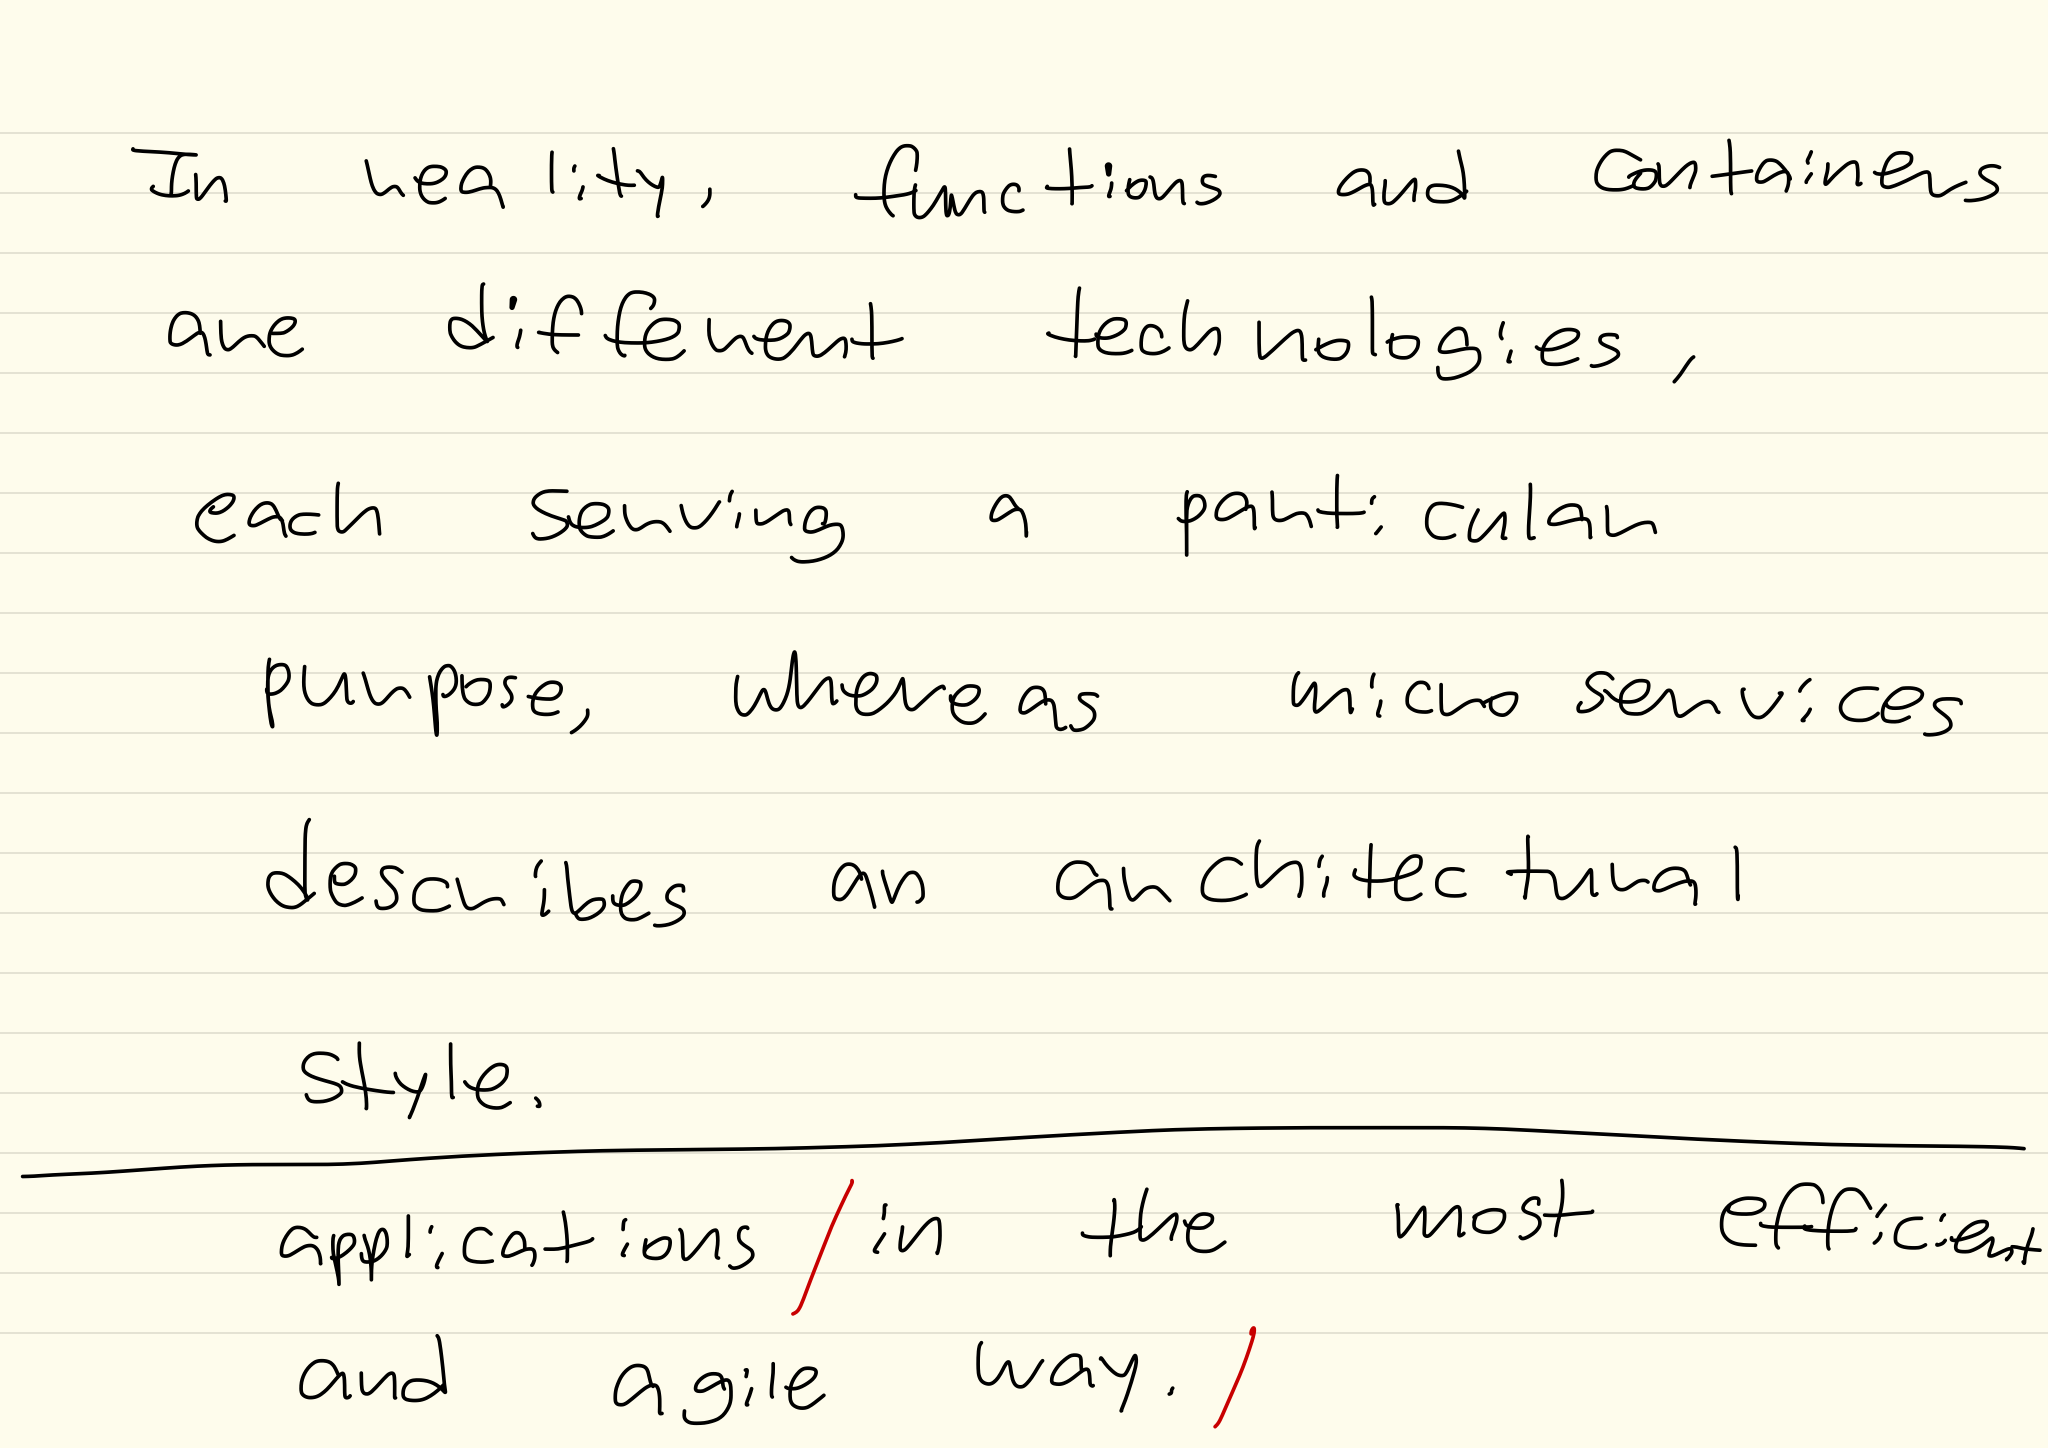 In reality, functions and containers
are different technologies,
each serving a particular
purpose, whereas microservices
describes an architectural
style.
applications / in the most efficient
and agile way. /